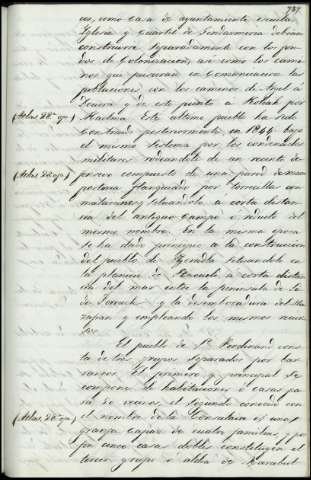 737.
cos, como casa de ayuntamiento, escuela
Iglesia y Cuartel de Gendarmeria debian
construirse separadamente con los fon-
dos de Colonizacion, asi como los cami-
nos que pusieran en comunicacion las
poblaciones con los caminos de Argel á
y de este punto a Koleah por
(Atlas 28ª op.) Este ultimo pueblo ha sido
construido posteriormente en 1844 bajo
el mismo sistema por los condenados
militares rodeandole de un recinto de-
(Atlas 28 op.) fensivo compuesto de una pared de mam-
posteria flanqueado por torreillas con
y situandole a corta distan-
cia del antiguo campo ó reducto del
mismo nombre. En la misma epoca
se ha dado principio a la construccion
del pueblo de situandole en
la planicie de á corta distan-
cia del mar entre la peninsula de Si-
di Ferruch y la desembocadura del Ma-
zafran y empleando los mismos recur-
sos
El pueblo de Sn. Ferdinand cons-
ta de tres grupos separados por bar-
rancos. El primero y principal se
compone de habitaciones ó casas pa-
ra vecinos, el segundo conocido con
(Atlas 28 op.) el nombre de la Consulaire es una
granja capaz de cuatro familias, y por
fin once casas dobles constituyen el
tercer grupo ó aldea de Marabut